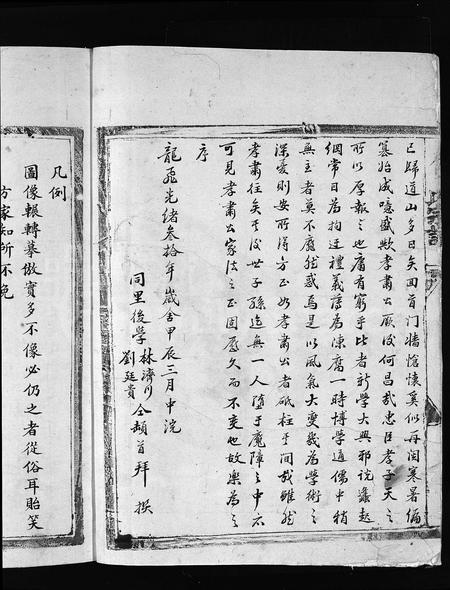 已歸道山多日矣回首門牆愴懷奚似每闰寒暑編
纂始成噫盛歟孝肅公厥後何昌哉忠臣孝子天之
所以厚報之也庸有窮乎比者新學大興邪說蠭起
綱常目為拘迂禮義薄為陳腐一時博學通儒中稍
無主者莫不靡然惑焉是以風氣大變幾為學術之
深憂則安所得方正如孝肅公者砥柱其间哉雖然
孝肅往矣其後世子孫迄無一人墮于魔障之中亦
可見孝肅公家法之正固歷久而不变也故樂為之
序
龍飛光緒叁拾年歲舍甲辰三月中浣
同里後學林濟川劉廷貴仝頓首拜 撰
凡例
圖像輾轉摹倣實多不像必仍之者從俗耳貽笑
方家知所不免